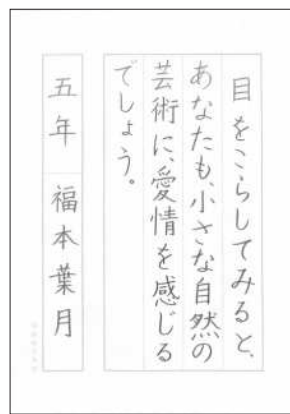 目をこらしてみると、
あなたも、小さな自然の
芸術に、愛情を感じる
でしょう。
五年 福本葉月